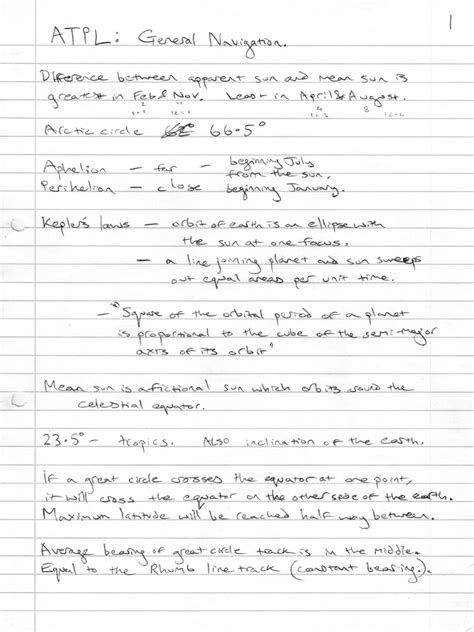 1
ATPL: General Navigation.
Difference between apparent sun and mean sun is
greatest in Feb & Nov. Least in April & August.
Arctic circle 66.5°
Aphelion – far – beginning July
from the sun.
Perihelion – close beginning January.
Kepler's laws – orbit of earth is an ellipse with
the sun at one focus.
– a line joining planet and sun sweeps
out equal areas per unit time.
– "Square of the orbital period of a planet
is proportional to the cube of the semi-major
axis of its orbit"
Mean sun is a fictional sun which orbits round the
celestial equator.
23.5° – tropics. Also inclination of the earth.
If a great circle crosses the equator at one point,
it will cross the equator on the other side of the earth.
Maximum latitude will be reached half way between.
Average bearing of great circle track is in the middle.
Equal to the Rhumb line track (constant bearing).